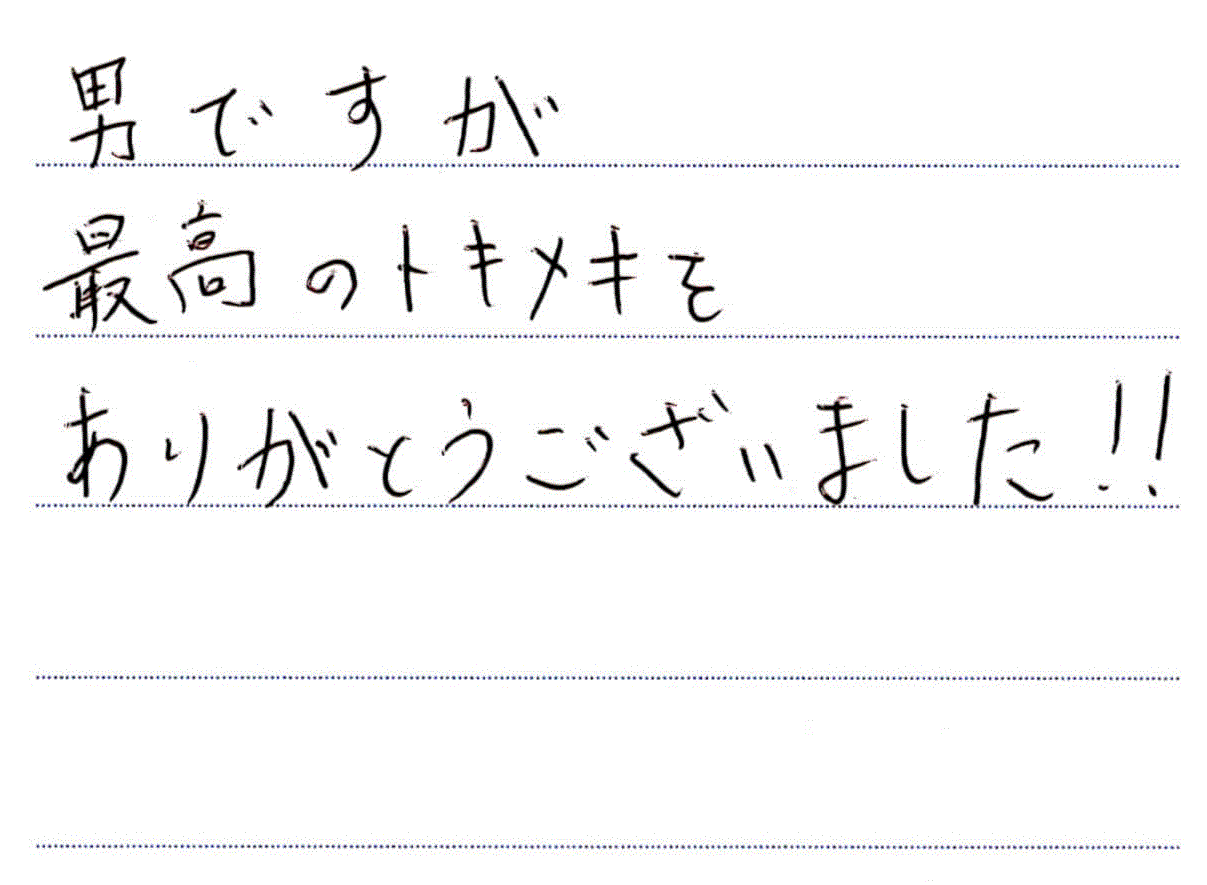 男ですが
最高のトキメキを
ありがとうございました!!